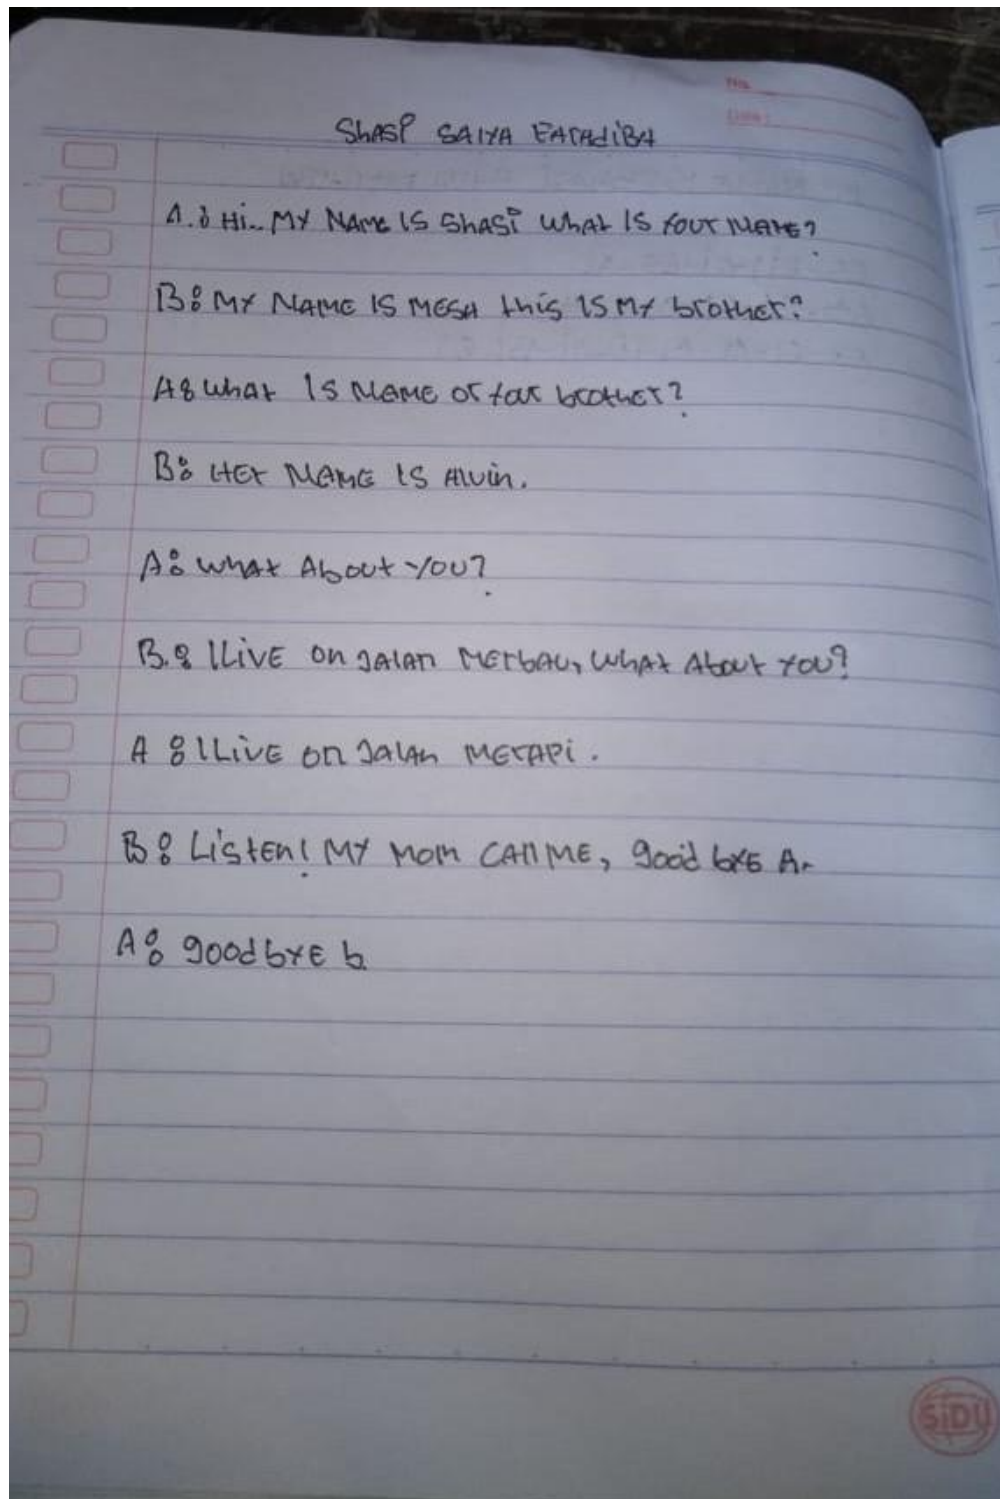 No.
Date:
Shasi SAIYA FARAdiBA
A. : Hi.. MY NAME IS Shasi What IS Your NAME?
B: MY NAME IS MESA this IS MY brother?
A: What IS NAME OF Your brother?
B: HEr NAME IS Alvin.
A: What About YOU?
B. : I LiVE on JAlAn MErbAU, What About YOU?
A : I LiVE on JalAn MErAPi.
B : Listen! MY Mom CAll ME, good bYE A.
A: good bYE b.
SiDU